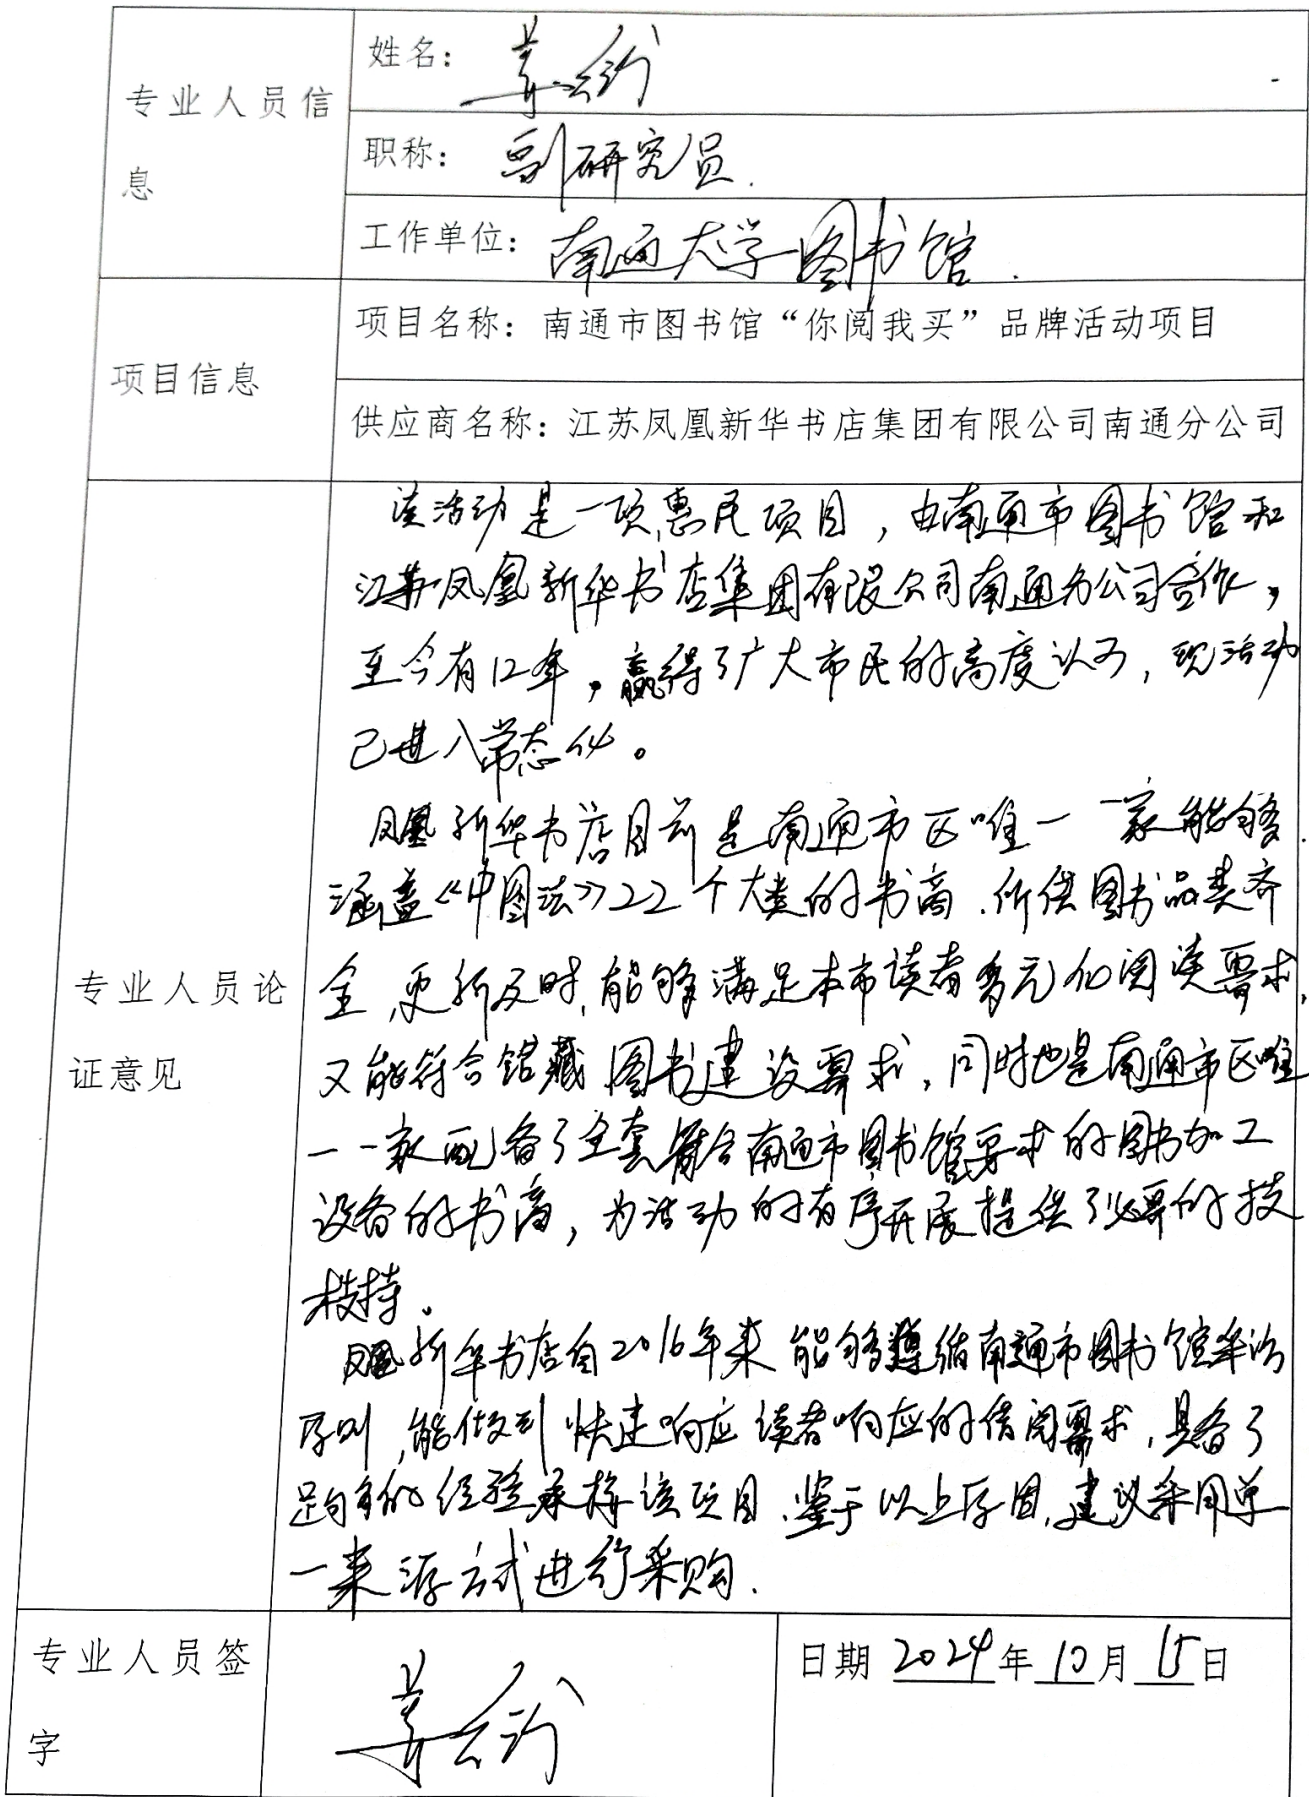 专业人员信息
姓名：姜
职称：副研究员.
工作单位：南通大学图书馆.
项目信息
项目名称：南通市图书馆“你阅我买”品牌活动项目
供应商名称：江苏凤凰新华书店集团有限公司南通分公司
专业人员论证意见
该活动是一项惠民项目，由南通市图书馆和
江苏凤凰新华书店集团有限公司南通分公司合作，
至今有12年，赢得了广大市民的高度认可，现活动
已进入常态化。
凤凰新华书店目前是南通市区唯一一家能够
涵盖《中图法》22个大类的书商、所供图书品类齐
全、更新及时，能够满足本市读者多元化阅读需求，
又能符合馆藏图书建设要求，同时也是南通市区唯
一一家配备了全套符合南通市图书馆要求的图书加工
设备的书商，为活动的有序开展提供了必要的技
术支持。
凤凰新华书店自2016年来能够遵循南通市图书馆采访
原则，能做到快速响应读者响应的借阅需求，具备了
足够的经验承接该项目、鉴于以上原因，建议采用单
一来源方式进行采购.
专业人员签字
姜
日期 2024年10月15日